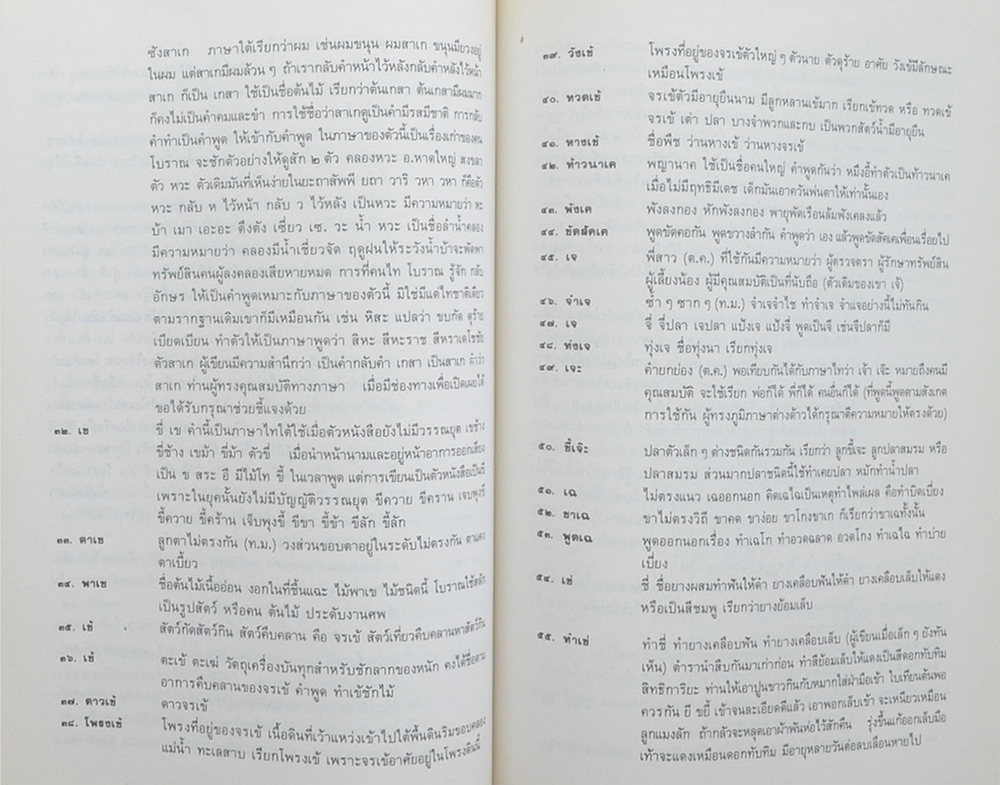 ซังสาเก ภาษาใต้เรียกว่าผม เช่นผมขนุน ผมสาเก ขนุนมียวงอยู่
ในผม แต่สาเกมีผมล้วน ๆ ถ้าเรากลับคำหน้าไว้หลังกลับคำหลังไว้หน้า
สาเก ก็เป็น เกสา ใช้เป็นชื่อต้นไม้ เรียกว่าต้นเกสา ต้นเกสามีผมมาก
ก็คงไม่เป็นคำคมและขำ การใช้ชื่อว่าสาเกดูเป็นคำมีรสมีชาติ การกลับ
คำทำเป็นคำพูด ให้เข้ากับคำพูด ในภาษาของตัวนี้เป็นเรื่องเก่าของคน
โบราณ จะชักตัวอย่างให้ดูสัก ๒ ตัว คลองหวะ อ.หาดใหญ่ สงขลา
ตัว หวะ ตัวเดิมมันที่เห็นง่ายในยะถาสัพพี ยถา วาริ วหา วหา ก็คือตัว
หวะ กลับ ห ไว้หน้า กลับ ว ไว้หลัง เป็นหวะ มีความหมายว่า ทะ
บ้า เมา เอะอะ ตึงตัง เชี่ยว เซ. วะ น้ำ หวะ เป็นชื่อลำน้ำคลอง
มีความหมายว่า คลองมีน้ำเชี่ยวจัด ฤดูฝนให้ระวังน้ำบ้าจะพัดพา
ทรัพย์สินคนผู้ลงคลองเสียหายหมด การที่คนไท โบราณ รู้จัก กลับ
อักษร ให้เป็นคำพูดเหมาะกับภาษาของตัวนี้ มิใช่มีแต่ไทชาติเดียว
ตามรากฐานเดิมเขาก็มีเหมือนกัน เช่น หิสะ แปลว่า ขบกัด ดุร้าย
เบียดเบียน ทำตัวให้เป็นภาษาพูดว่า สิหะ สีหะราช สีหราเดโชชัย
ตัวสาเก ผู้เขียนมีความสำนึกว่า เป็นคำกลับคำ เกสา เป็นสาเก คำว่า
สาเก ท่านผู้ทรงคุณสมบัติทางภาษา เมื่อมีช่องทางเพื่อเปิดเผยได้
ขอได้รับกรุณาช่วยชี้แจงด้วย
๓๒. เข ขี่ เข คำนี้เป็นภาษาไทใต้ใช้เมื่อตัวหนังสือยังไม่มีวรรณยุต เขช้าง
ขี่ช้าง เขม้า ขี่ม้า ตัวขี่ เมื่อนำหน้านามและอยู่หน้าอาการออกเสียง
เป็น ข สระ อี มีไม้โท ขี้ ในเวลาพูด แต่การเขียนเป็นตัวหนังสือเป็นขี
เพราะในยุคนั้นยังไม่มีบัญญัติวรรณยุต ขีควาย ขีคราน เจบพุงขี
ขี้ควาย ขี้คร้าน เจ็บพุงขี้ ขีขา ขี้ข้า ขีลัก ขี้ลัก
๓๓. ตาเข ลูกตาไม่ตรงกัน (ท.ม.) วงส่วนขอบตาอยู่ในระดับไม่ตรงกัน ตาแดง
ตาเบี้ยว
๓๔. พาเข ชื่อต้นไม้เนื้ออ่อน งอกในที่ชื้นแฉะ ไม้พาเข ไม้ชนิดนี้ โบราณใช้สลัก
เป็นรูปสัตว์ หรือคน ต้นไม้ ประดับงานศพ
๓๕. เข้ สัตว์กัดสัตว์กิน สัตว์คืบคลาน คือ จรเข้ สัตว์เที่ยวคืบคลานหาสัตว์กิน
๓๖. เข้ ตะเข้ ตะเฆ่ วัตถุเครื่องบันทุกสำหรับชักลากของหนัก คงได้ชื่อตาม
อาการคืบคลานของจรเข้ คำพูด ทำเข้ชักไม้
๓๗. ดาวเข้ ดาวจรเข้
๓๘. โพรงเข้ โพรงที่อยู่ของจรเข้ เนื้อดินที่เว้าแหว่งเข้าไปใต้พื้นดินริมขอบคลอง
แม่น้ำ ทะเลสาบ เรียกโพรงเข้ เพราะจรเข้อาศัยอยู่ในโพรงดินนี้
๓๙. วังเข้ โพรงที่อยู่ของจรเข้ตัวใหญ่ ๆ ตัวนาย ตัวดุร้าย อาศัย วังเข้มีลักษณะ
เหมือนโพรงเข้
๔๐. ทวดเข้ จรเข้ตัวมีอายุยืนนาม มีลูกหลานเข้มาก เรียกเข้ทวด หรือ ทวดเข้
จรเข้ เต่า ปลา บางจำพวกและกบ เป็นพวกสัตว์น้ำมีอายุยืน
๔๑. หางเข้ ชื่อพืช ว่านหางเข้ ว่านหางจรเข้
๔๒. ท้าวนาเค พญานาค ใช้เป็นชื่อคนใหญ่ คำพูดกันว่า หมึงอี้ทำตัวเป็นท้าวนาเค
เมื่อไม่มีฤทธิมีเดช เด็กมันเอาควันพ่นตาให้เท่านั้นเอง
๔๓. พังเค พังลงกอง หักพังลงกอง พายุพัดเรือนล้มพังเคลงแล้ว
๔๔. ขัดสัคเค พูดขัดคอกัน พูดขวางลำกัน คำพูดว่า เอง แล้วพูดขัดสัคเคเพื่อนเรื่อยไป
๔๕. เจ พี่สาว (ต.ค.) ที่ใช้กันมีความหมายว่า ผู้ตรวจตรา ผู้รักษาทรัพย์สิน
ผู้เลี้ยงน้อง ผู้มีคุณสมบัติเป็นที่นับถือ (ตัวเดิมของเขา เจ๊)
๔๖. จำเจ ซ้ำ ๆ ซาก ๆ (ท.ม.) จำเจจำไช ทำจำเจ จำแจอย่างนี้ไม่ทันกิน
๔๗. เจ จี่ จี่ปลา เจปลา แป้งเจ แป้งจี่ พูดเป็นจี เช่นจีปลาก็มี
๔๘. ท่งเจ ทุ่งเจ ชื่อทุ่งนา เรียกทุ่งเจ
๔๙. เจะ คำยกย่อง (ต.ค.) พอเทียบกันได้กับภาษาไทว่า เจ้า เจ๊ะ หมายถึงคนมี
คุณสมบัติ จะใช้เรียก พ่อก็ได้ พี่ก็ได้ คนอื่นก็ได้ (ที่พูดนี้พูดตามสังเกต
การใช้กัน ผู้ทรงภูมิภาษาต่างด้าวได้กรุณาตีความหมายให้ตรงด้วย)
๕๐. ขี้เจ๊ะ ปลาตัวเล็ก ๆ ต่างชนิดกันรวมกัน เรียกว่า ลูกขี้เจะ ลูกปลาสมรม หรือ
ปลาสมรม ส่วนมากปลาชนิดนี้ใช้ทำเคยปลา หมักทำน้ำปลา
๕๑. เฉ ไม่ตรงแนว เฉออกนอก คิดเฉไฉเป็นเหตุทำไพล่เผล คือทำบิดเบี่ยง
๕๒. ขาเฉ ขาไม่ตรงวิถี ขาคด ขาง่อย ขาโกงขาเก ก็เรียกว่าขาเฉทั้งนั้น
๕๓. พูดเฉ พูดออกนอกเรื่อง ทำเฉโก ทำอวดฉลาด อวดโกง ทำเฉไฉ ทำบ่าย
เบี่ยง
๕๔. เช่ ชี่ ชื่อยางผสมทำฟันให้ดำ ยางเคลือบฟันให้ดำ ยางเคลือบเล็บให้แดง
หรือเป็นสีชมพู เรียกว่ายางย้อมเล็บ
๕๕. ทำเช่ ทำชี่ ทำยางเคลือบฟัน ทำยางเคลือบเล็บ (ผู้เขียนเมื่อเล็ก ๆ ยังทัน
เห็น) ตำรานำสืบกันมาเก่าก่อน ทำสีย้อมเล็บให้แดงเป็นสีดอกทับทิม
สิทธิการิยะ ท่านให้เอาปูนขาวกินกับหมากใส่ฝ่ามือเข้า ใบเทียนต้นพอ
ควรกัน ยี ขยี้ เข้าจนละเอียดดีแล้ว เอาพอกเล็บเข้า จะเหนียวเหมือน
ลูกแมงลัก ถ้ากลัวจะหลุดเอาผ้าพันห่อไว้สักคืน รุ่งขึ้นแก้ออกเล็บมือ
เท้าจะแดงเหมือนดอกทับทิม มีอายุหลายวันต่อลบเลือนหายไป